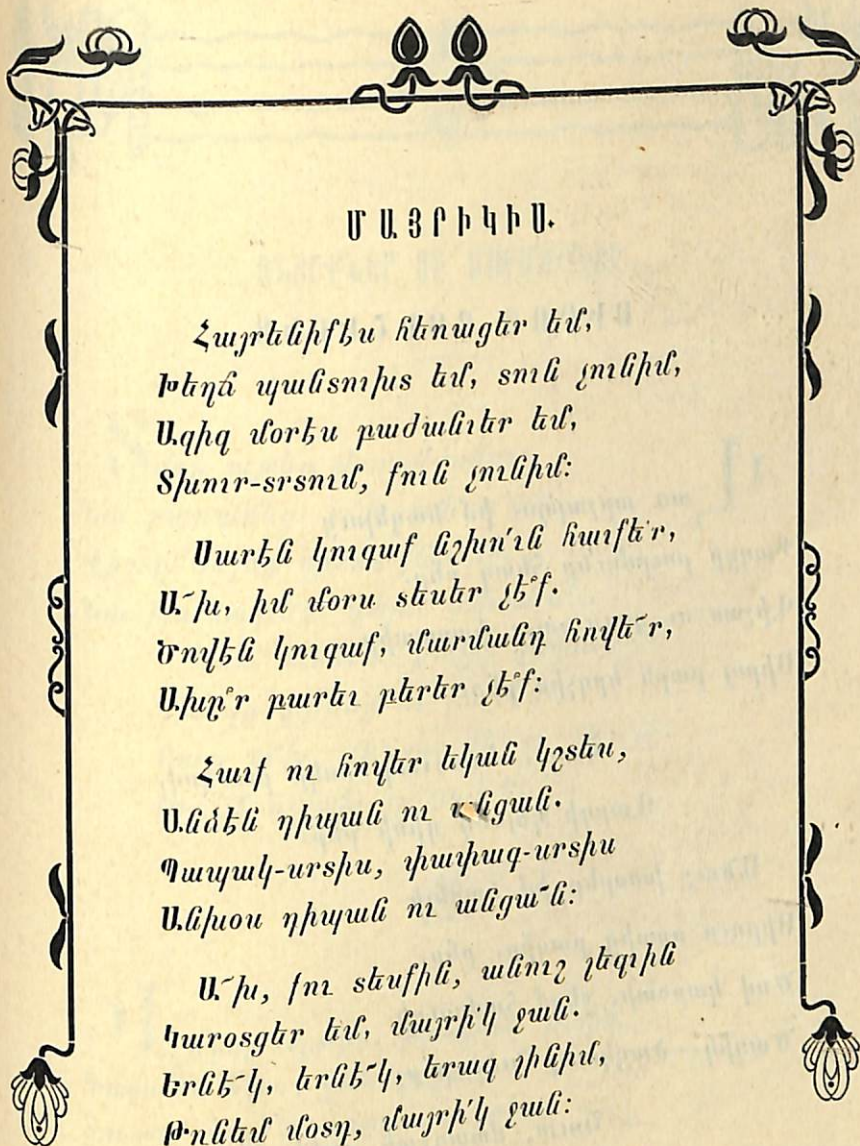 ՄԱՅՐԻԿԻՍ.
Հայրենիքէս հեռացեր եմ,
Խեղճ պանտուխտ եմ, տուն չունիմ,
Ազիզ մօրէս բաժանւեր եմ,
Տխուր-տրտում, քուն չունիմ:
Սարէն կուգաք նշխո՛ւն հաւքե՛ր,
Ա՜խ, իմ մօրս տեսեր չէ՞ք.
Ծովէն կուգաք, մարմանդ հովե՜ր,
Ախը՞ր բարեւ բերեր չէ՞ք:
Հաւք ու հովեր եկան կշտես,
Անձէն դիպան ու անցան.
Պապակ-սրտիս, փափագ-սրտիս
Անխօս դիպան ու անցա՜ն:
Ա՜խ, քու տեսքին, անուշ լեզւին
Կարօտցեր եմ, մայրի՛կ ջան.
Երնէ՜կ, երնէ՜կ, երազ լինիմ,
Թռնեմ մօտդ, մայրի՛կ ջան: